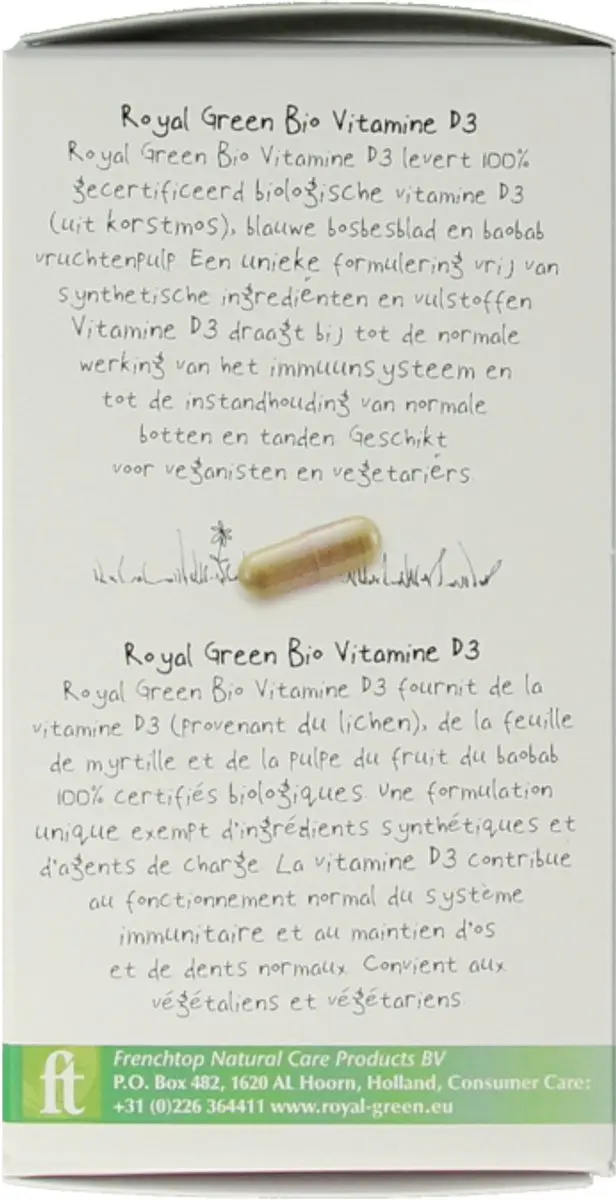 Royal Green Bio Vitamine D3
Royal Green Bio Vitamine D3 levert 100%
gecertificeerd biologische vitamine D3
(uit korstmos), blauwe bosbesblad en baobab
vruchtenpulp Een unieke formulering vrij van
synthetische ingrediënten en vulstoffen
Vitamine D3 draagt bij tot de normale
werking van het immuunsysteem en
tot de instandhouding van normale
botten en tanden Geschikt
voor veganisten en vegetariërs
Royal Green Bio Vitamine D3
Royal Green Bio Vitamine D3 fournit de la
vitamine D3 (provenant du lichen), de la feuille
de myrtille et de la pulpe du fruit du baobab
100% certifiés biologiques Une formulation
unique exempt d'ingrédients synthétiques et
d'agents de charge La vitamine D3 contribue
au fonctionnement normal du système
immunitaire et au maintien d'os
et de dents normaux Convient aux
végétaliens et végétariens
ft
Frenchtop Natural Care Products BV
P.O. Box 482, 1620 AL Hoorn, Holland, Consumer Care:
+31 (0)226 364411 www.royal-green.eu